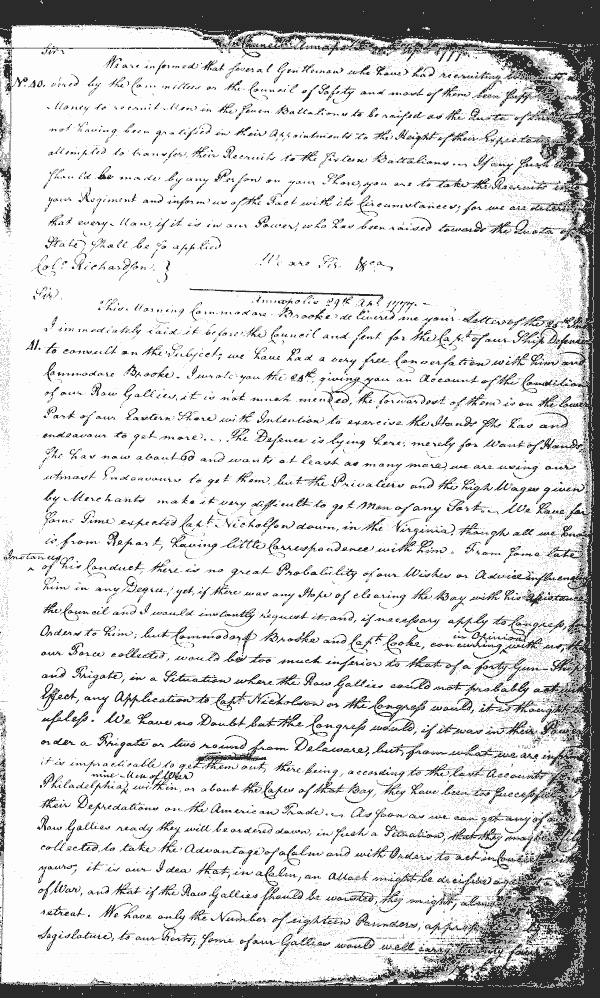 In Council Annapolis Apl. 1777.
Sir
We are informed that several Gentlemen who have had recruiting
No. 40. ered by the Committees or the Council of Safety and most of them been
Money to recruit Men in the seven Battalions to be raised as the Quota of
not having been gratified in their Appointments to the Height of their
attempted to transfer their Recruits to the sixteen Battalions. If any such
should be made by any Person on your Shore, you are to take the Recruits
your Regiment and inform us of the Fact with its Circumstances, for we are
that every Man, if it is in our Power, who has been raised towards the Quota of
State, shall be so applied
Colo. Richardson } We are Sir &ca
Annapolis 29th Apl. 1777.
Sir.
This Morning Commodore Brooke delivered me your Letter of the
I immediately laid it before the Council and sent for the Capt. of our Ship Defence
41. to consult on the Subject; we have had a very free Conversation with him and
Commodore Brooke. I wrote you the 24th, giving you an Account of the Condition
of our Row Gallies, it is not much mended, the forwardest of them is on the lower
Part of our Eastern Shore with Intention to exercise the Hands she has and
endeavour to get more... The Defence is lying here, merely for Want of Hands,
she has now about 60 and wants at least as many more, we are using our
utmost Endeavours to get them, but the Privatiers and the high Wages given
by Merchants make it very difficult to get Men of any Sort. We have for
some Time expected Capt. Nicholson down, in the Virginia, though all we know
is from Report, having little Correspondence with him. From some late
Instances
of his Conduct, there is no great Probability of our Wishes or Advice influencing
him in any Degree; yet, if there was any Hope of clearing the Bay with his
the Council and I would instantly request it and, if necessary apply to Congress, for
Orders to him, but Commodore Brooke and Capt. Cooke, concurring with us,
in Opinion
our Force collected, would be too much inferior to that of a forty Gun Ship
and Frigate, in a Situation where the Row Gallies could not probably act with
Effect, any Application to Capt. Nicholson or the Congress would, it is thought
useless. We have no Doubt but the Congress would, if it was in their Power
order a Frigate or two round from Delaware, but, from what we are
it is impracticable to get them out, there being, according to the last Accounts
nine Men of War
Philadelphia, within, or about the Capes of that Bay, they have been too
their Depredations on the American Trade. As soon as we can get any of
Row Gallies ready they will be ordered down, in such a Situation, that they may
collected, to take the Advantage of a Calm and with Orders to act in
yours, it is our Idea that, in a Calm, an attack might be decisive
of War, and that if the Row Gallies should be worsted, they might,
retreat. We have only the Number of eighteen Pounders,
Legislature, to our Forts, some of our Gallies would well carry